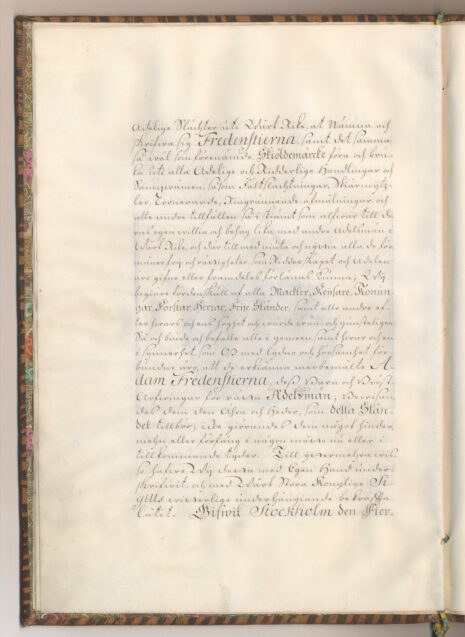 Adelige Slächter uti Wårt Rike, at Nämna och
skrifwa sig Fredenstierna, samt det samma
så wäl som förenämde Skiöldemärke föra och bru-
ka uti alla Adelige och Ridderlige Handlingar och
Sammanwaron, såsom Fältslachtningar, Skärmytz-
ler, Tornerande, Ringrännande, afmålningar och
alle andre tillfällen så i skiämt som alfwar till de-
ras egen willia och behag lika med andre Adelsmän i
Wårt Rike, och där till med niuta och nyttia alla de för-
måner frij- och rättigheter som Ridderskapet och Adelen
äro gifne eller framdeles förlänas kunna; Wij
begiäre fördenskull af alla Machter, Keysare, Konun-
gar, Förstar, Herrar, Frije Ständer, samt alla andre ef-
ter hwars och ens höghet och wärde wän- och gunsteligen
Så och biude och befalle alle i gemeen samt hwar och en
i synnerhet, som Oss med lydno och hörsamhet för-
bundne äro, att de erkänna merbemälte A-
dam Fredenstierna, dess Barn och Bröst-
Arfwingar för rätta Adelsmän, bewisan-
des dem den Ähra och Heder, som detta Stån-
det tillhör, icke giörandes dem något hinder,
mehn eller förfång i någon måtto nu eller i
tillkommande tijder. Till yttermehra wis-
so hafwe Wij detta med Egen Hand under-
skrifwit, och med Wårt Stora Konglige Si-
gills witterlige underhängiande bekräffta
låtit. Gifwit Stockholm den Fier-